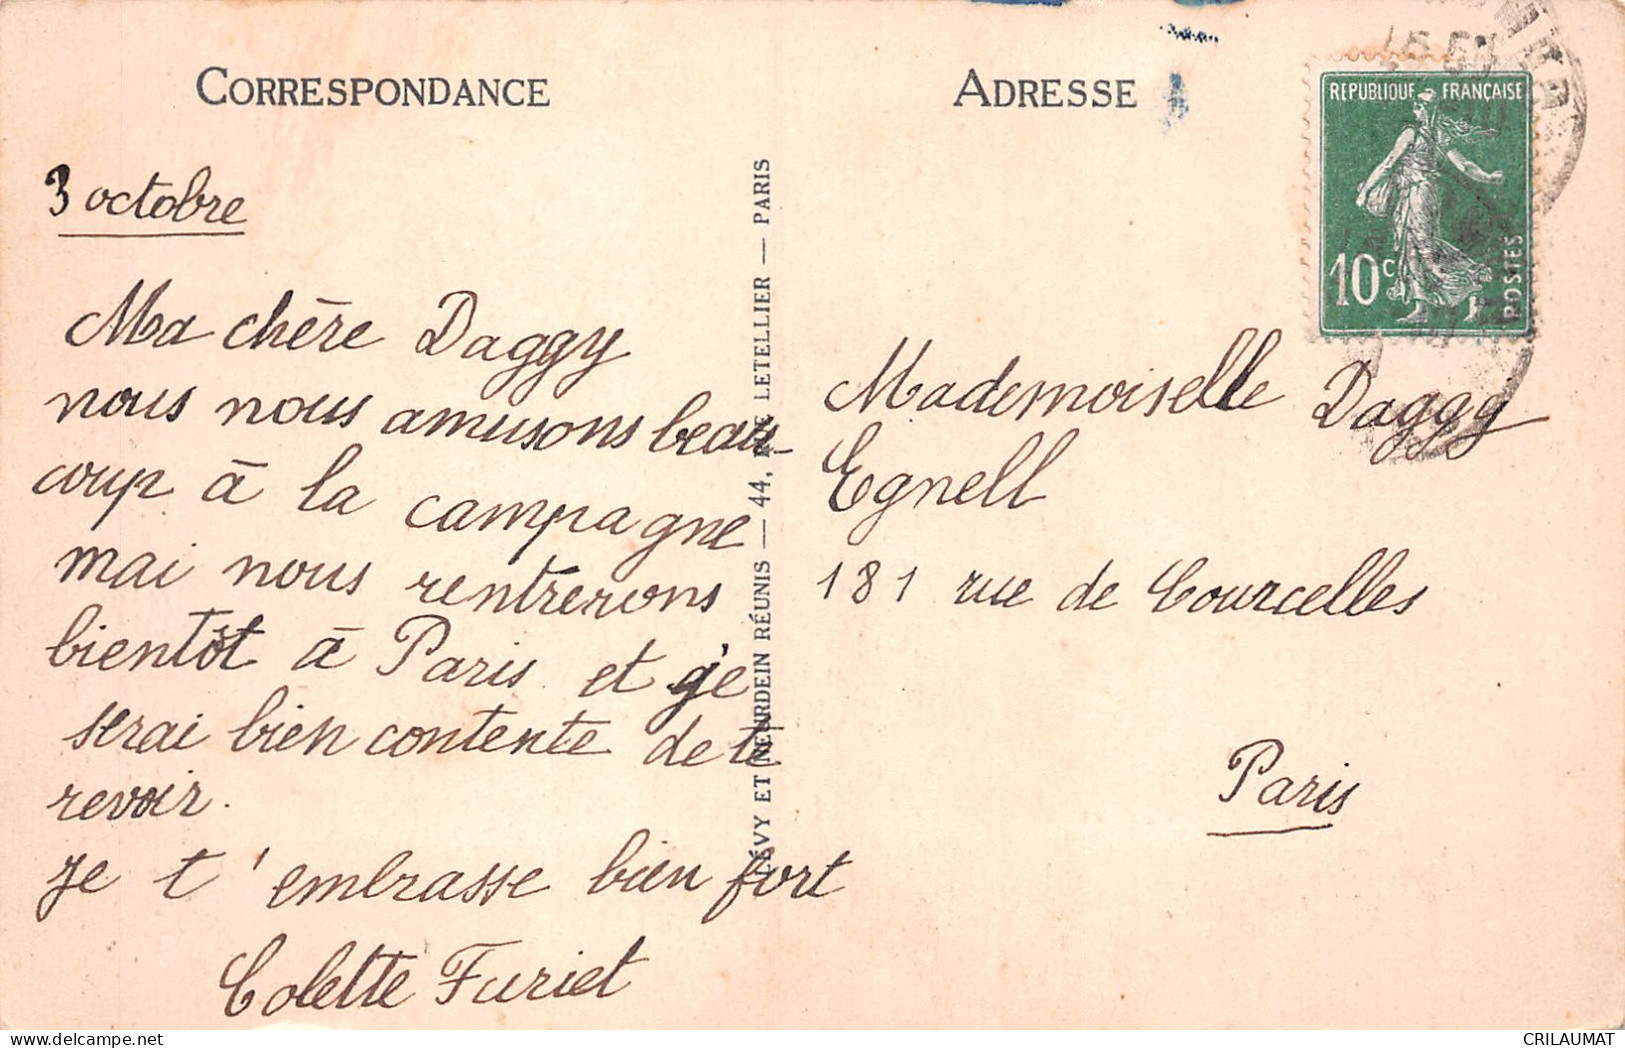 CORRESPONDANCE
3 octobre
Ma chère Daggy
nous nous amusons beau-
coup à la campagne
mai nous rentrerons
bientôt à Paris et je
serai bien contente de te
revoir.
je t'embrasse bien fort
Colette Furiet
LÉVY ET NEURDEIN RÉUNIS — 44, RUE LETELLIER — PARIS
ADRESSE
REPUBLIQUE FRANÇAISE
10c
POSTES
Mademoiselle Daggy
Egnell
181 rue de Courcelles
Paris
CRILAUMAT